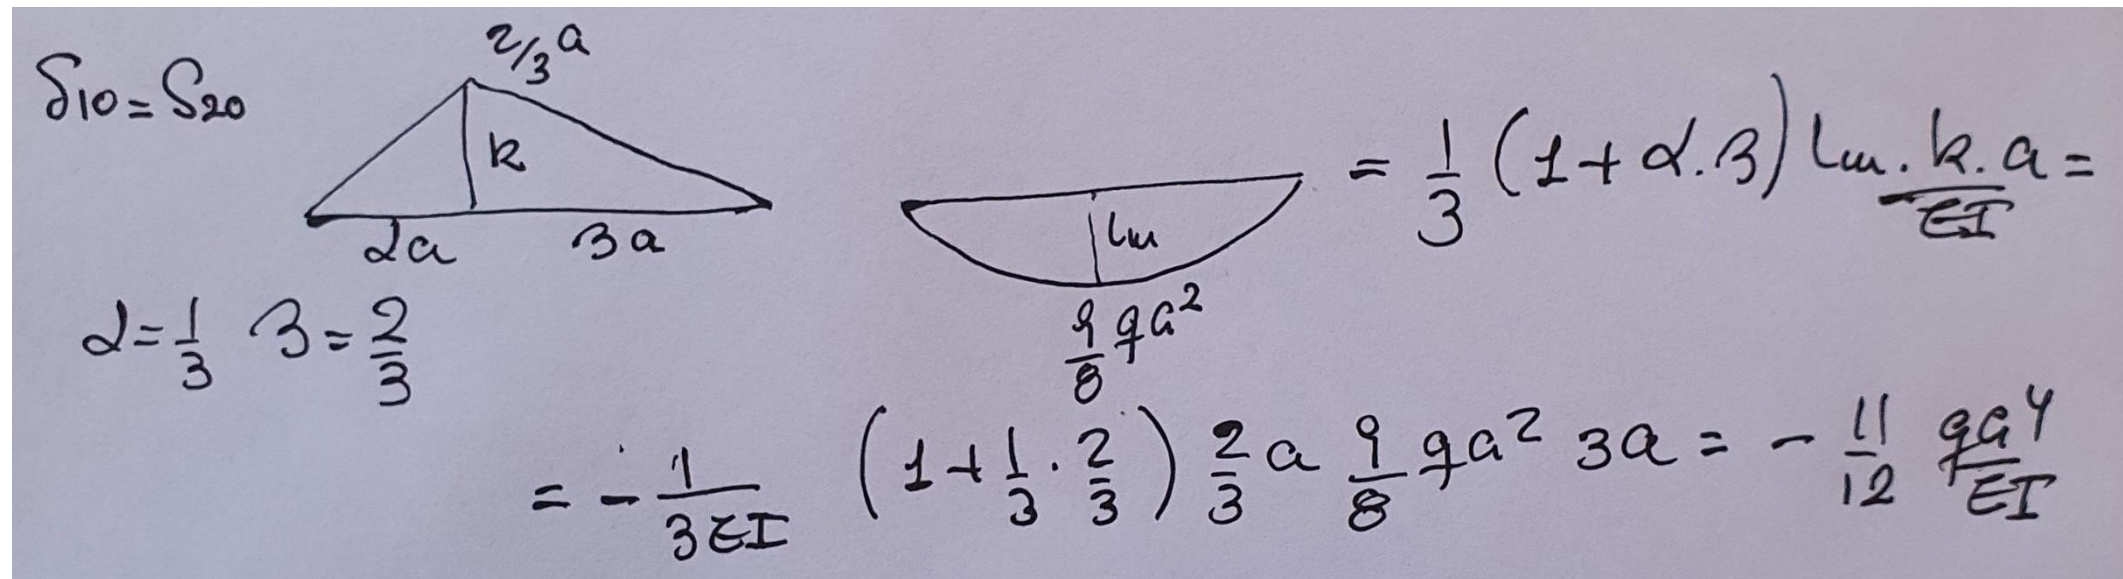 2/3 a
δ10 = δ20
k
2a 3a
lm
9/8 qa²
= 1/3 (1 + α.β) lm.k.a/EI =
α = 1/3 β = 2/3
= - 1/3EI (1 + 1/3 . 2/3) 2/3 a 9/8 qa² 3a = - 11/12 qa⁴/EI